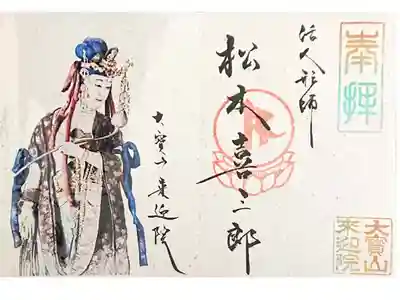 奉拝
活人形師
松本喜三郎
大寶山 来迎院
大寶山
来迎院